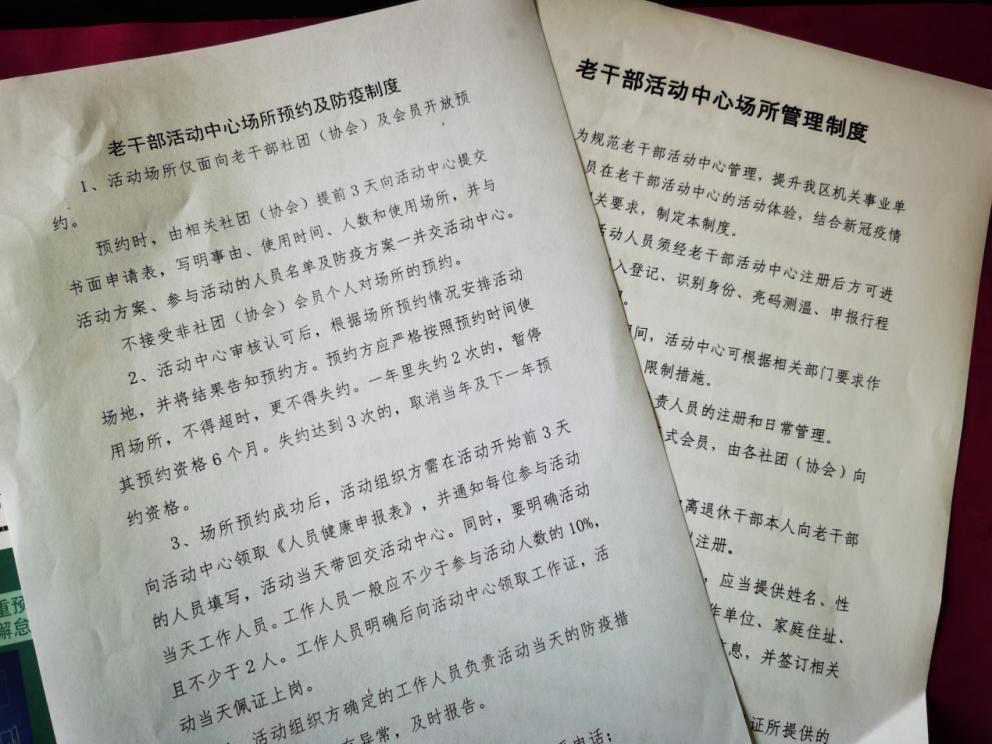 老干部活动中心场所预约及防疫制度
1、活动场所仅面向老干部社团（协会）及会员开放预
约。
预约时，由相关社团（协会）提前3天向活动中心提交
书面申请表，写明事由、使用时间、人数和使用场所，并与
活动方案、参与活动的人员名单及防疫方案一并交活动中心。
不接受非社团（协会）会员个人对场所的预约。
2、活动中心审核认可后，根据场所预约情况安排活动
场地，并将结果告知预约方。预约方应严格按照预约时间使
用场所，不得超时，更不得失约。一年里失约2次的，暂停
其预约资格6个月。失约达到3次的，取消当年及下一年预
约资格。
3、场所预约成功后，活动组织方需在活动开始前3天
向活动中心领取《人员健康申报表》，并通知每位参与活动
的人员填写，活动当天带回交活动中心。同时，要明确活动
当天工作人员。工作人员一般应不少于参与活动人数的10%，
且不少于2人。工作人员明确后向活动中心领取工作证，活
动当天佩证上岗。
活动组织方确定的工作人员负责活动当天的防疫措
异常，及时报告。
电话；
老干部活动中心场所管理制度
为规范老干部活动中心管理，提升我区机关事业单
员在老干部活动中心的活动体验，结合新冠疫情
关要求，制定本制度。
活动人员须经老干部活动中心注册后方可进
入登记、识别身份、亮码测温、申报行程
间，活动中心可根据相关部门要求作
限制措施。
责人员的注册和日常管理。
式会员，由各社团（协会）向
离退休干部本人向老干部
注册。
，应当提供姓名、性
作单位、家庭住址、
息，并签订相关
证所提供的
重预
解急